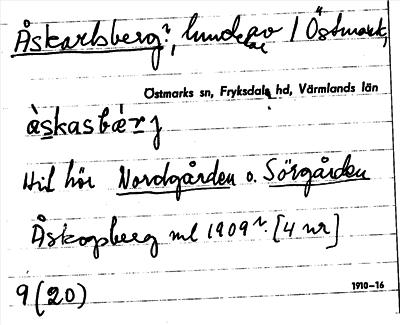 Åskarlsberg, lunde av / Östmark,
Östmarks sn, Fryksdals hd, Värmlands län
àskasbærj
Hit hör Nordgården o. Sörgården
Åskogsberg ml 1909 [4 nr]
9 (20)
1910-16